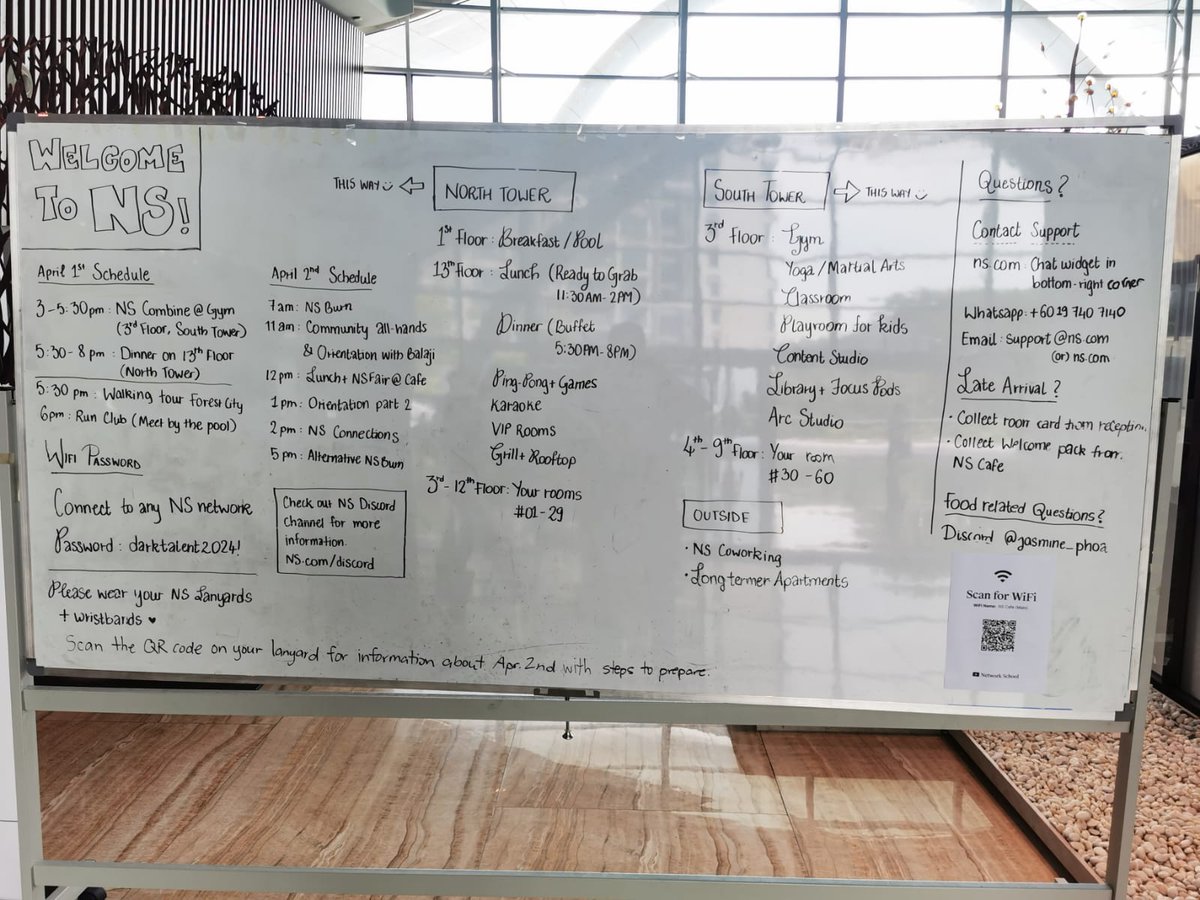 WELCOME
TO NS!
April 1st Schedule
3-5:30pm : NS Combine @ Gym
(3rd Floor, South Tower)
5:30-8pm : Dinner on 13th Floor
(North Tower)
5:30 pm : Walking tour Forest City
6pm : Run Club (Meet by the pool)
WIFI PASSWORD
Connect to any NS network
Password : darktalent2024!
Please wear your NS Lanyards
+ wristbands ♥
Scan the QR code on your lanyard for information about Apr. 2nd with steps to prepare.
April 2nd Schedule
7am : NS Burn
11am : Community all-hands
& Orientation with Balaji
12pm : Lunch + NS Fair @ Cafe
1pm : Orientation part 2
2pm : NS Connections
5pm : Alternative NS Burn
Check out NS Discord
Channel for more
information.
NS.com/discord
THIS WAY
NORTH TOWER
1st Floor : Breakfast / Pool
13th floor : Lunch (Ready to Grab
11:30AM - 2PM)
Dinner (Buffet
5:30PM - 8PM)
Ping-Pong + Games
KARAOKE
VIP ROOMS
Grill + Rooftop
3rd - 12th Floor : Your rooms
#01 - 29
SOUTH TOWER
THIS WAY
3rd Floor : Gym
Yoga / Martial Arts
Classroom
Playroom for kids
Content Studio
Library + Focus Pods
Arc Studio
4th - 9th Floor : Your room
#30 - 60
OUTSIDE
· NS Coworking
· Long termer Apartments
Questions?
Contact Support
ns.com : Chat widget in
bottom-right corner
Whatsapp : +6019 740 7140
Email : support@ns.com
(or) ns.com
Late Arrival ?
· Collect room card from reception.
· Collect Welcome pack from
NS Cafe
Food related Questions?
Discord @jasmine_phoa
Scan for WiFi
WiFi Name: NS Cafe (Main)
Network School